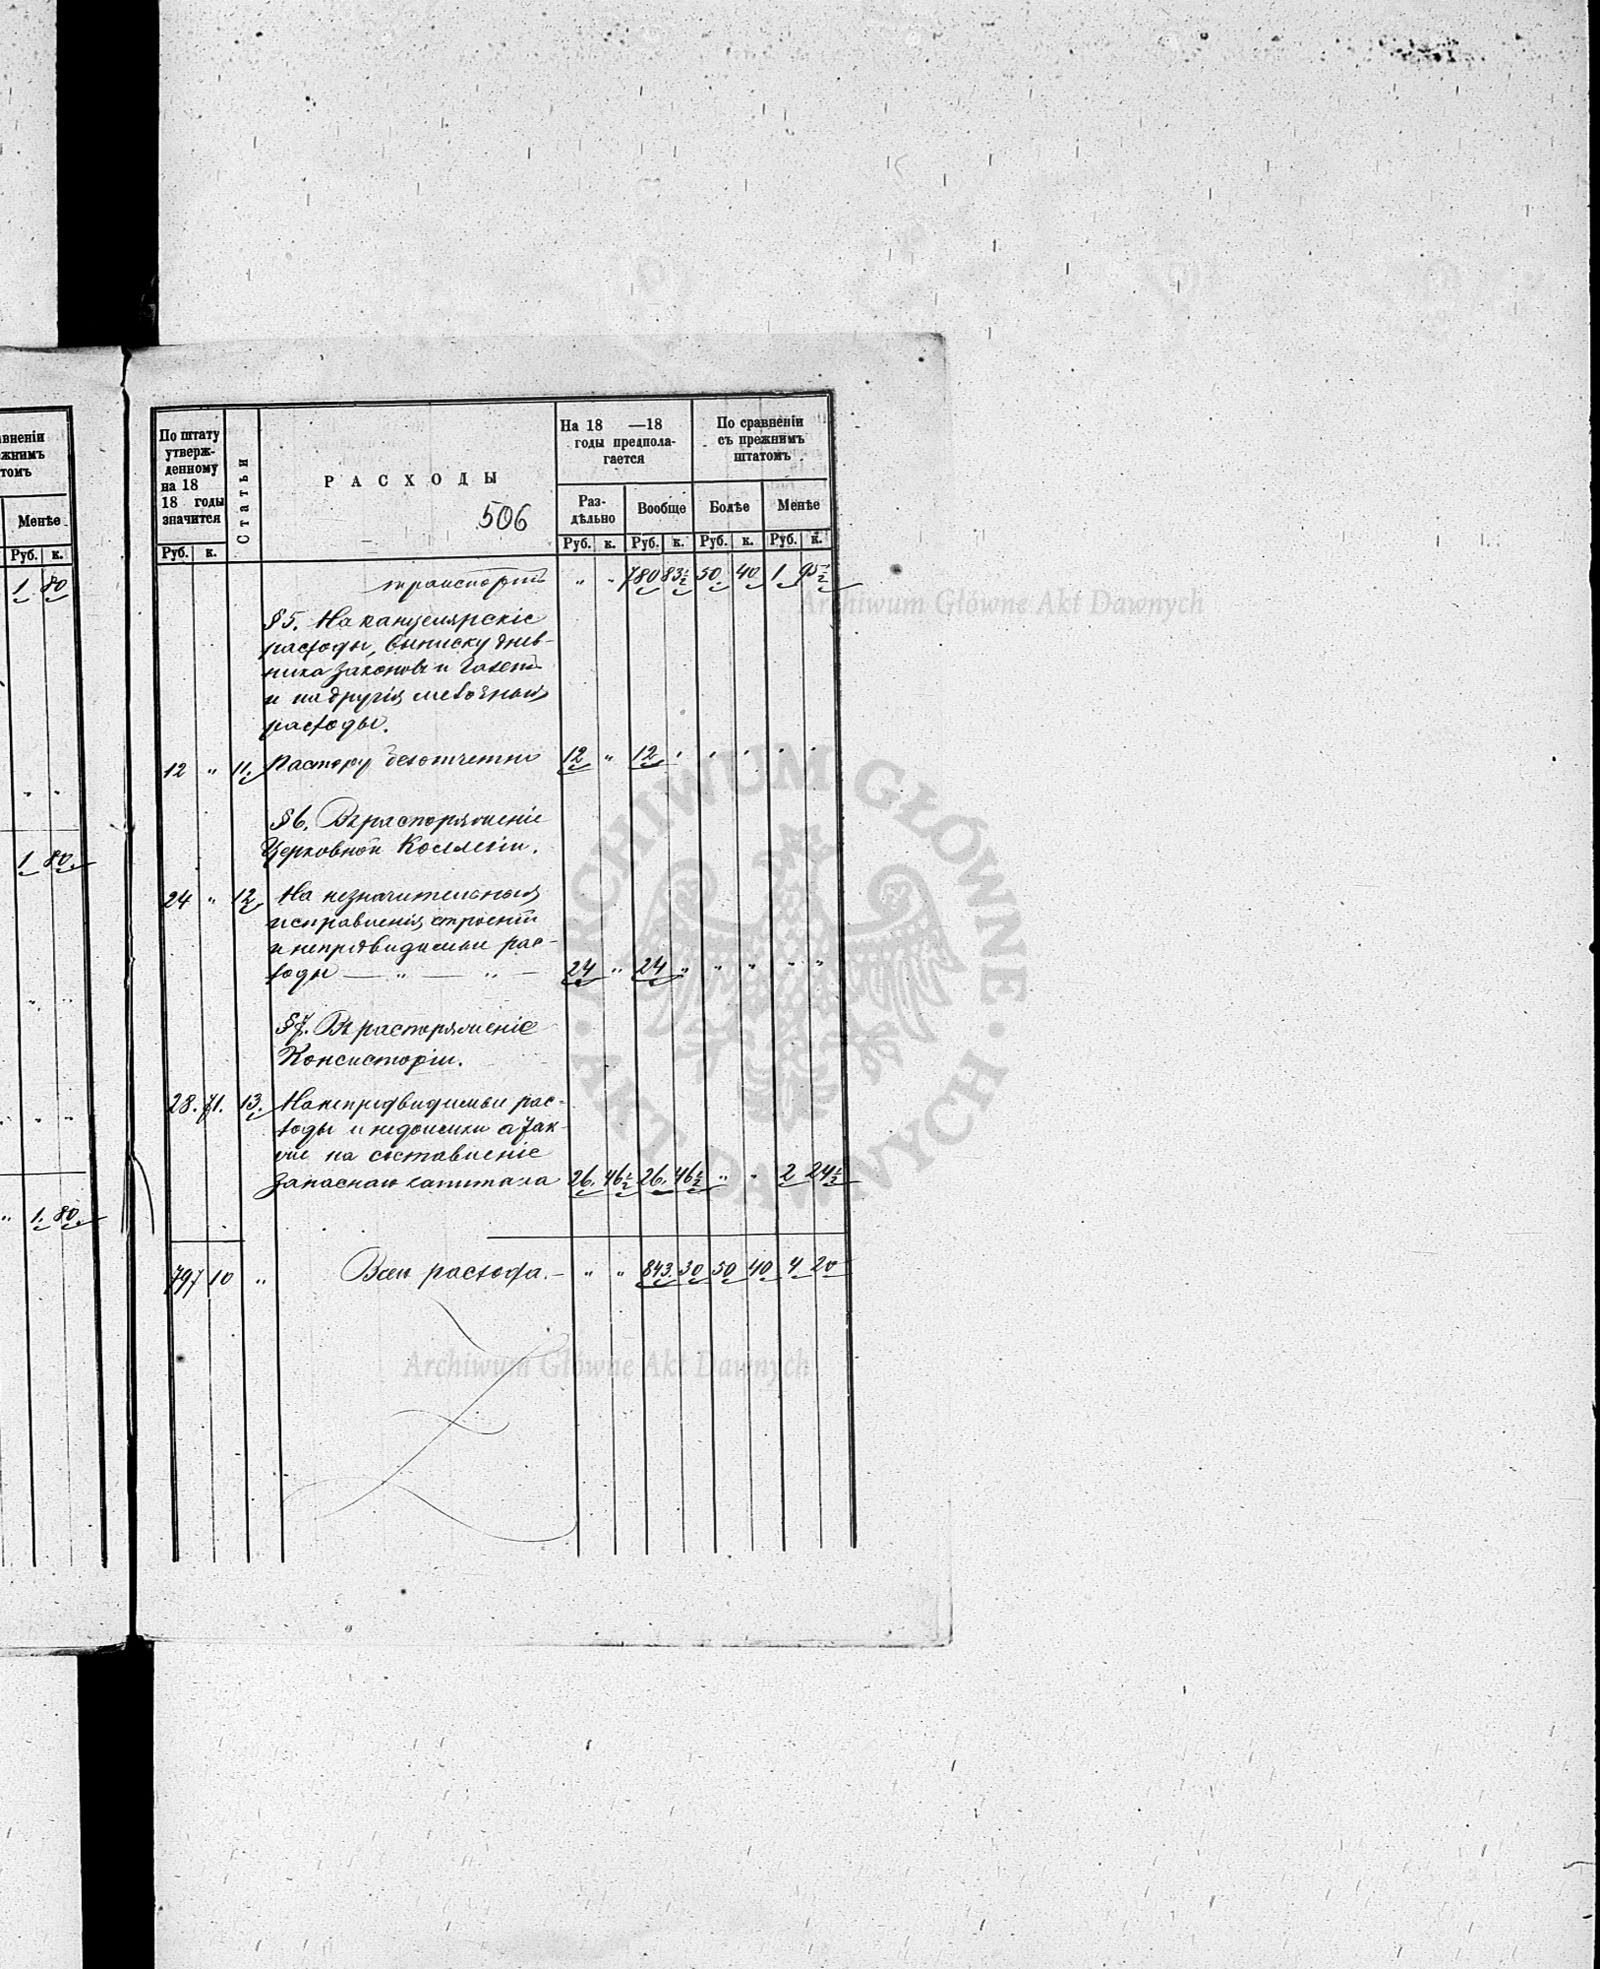 авненіи
жнимъ
томъ
Менѣе
Руб. к.
1 80
" "
1 80
" "
" "
" 1. 80.
По штату утверж-денному на 18 18 годы значится
Статьи
РАСХОДЫ
506
На 18 —18 годы предпола-гается
По сравненіи съ прежнимъ штатомъ
Раз-дѣльно
Вообще
Болѣе
Менѣе
Руб. к. Руб. к. Руб. к. Руб. к. Руб. к.
транспортъ " " 780 83½ 50 40 1 95½
§5. На канцелярскіе
расходы, выписку днев-
ника законовъ и газетъ
и на другія мелочныя
расходы.
12 " 11. Пастору безотчетно 12 " 12 " " " " "
§6. Въ распоряженіе
Церковной Коллегіи.
24 " 12 На незначительныя
исправленія строеній
и непредвидимые рас-
ходы — " — " — 24 " 24 " " " " "
§7. Въ распоряженіе
Консисторіи.
28. 71. 13. На непредвидимые рас-
ходы и недоимки а так-
же на составленіе
запаснаго капитала 26. 46½ 26. 46½ " " 2 24½
797 10 " Всего расхода. — " " 843. 30 50 40 4 20
Archiwum Główne Akt Dawnych
ARCHIWUM GŁÓWNE AKT DAWNYCH
Archiwum Główne Akt Dawnych